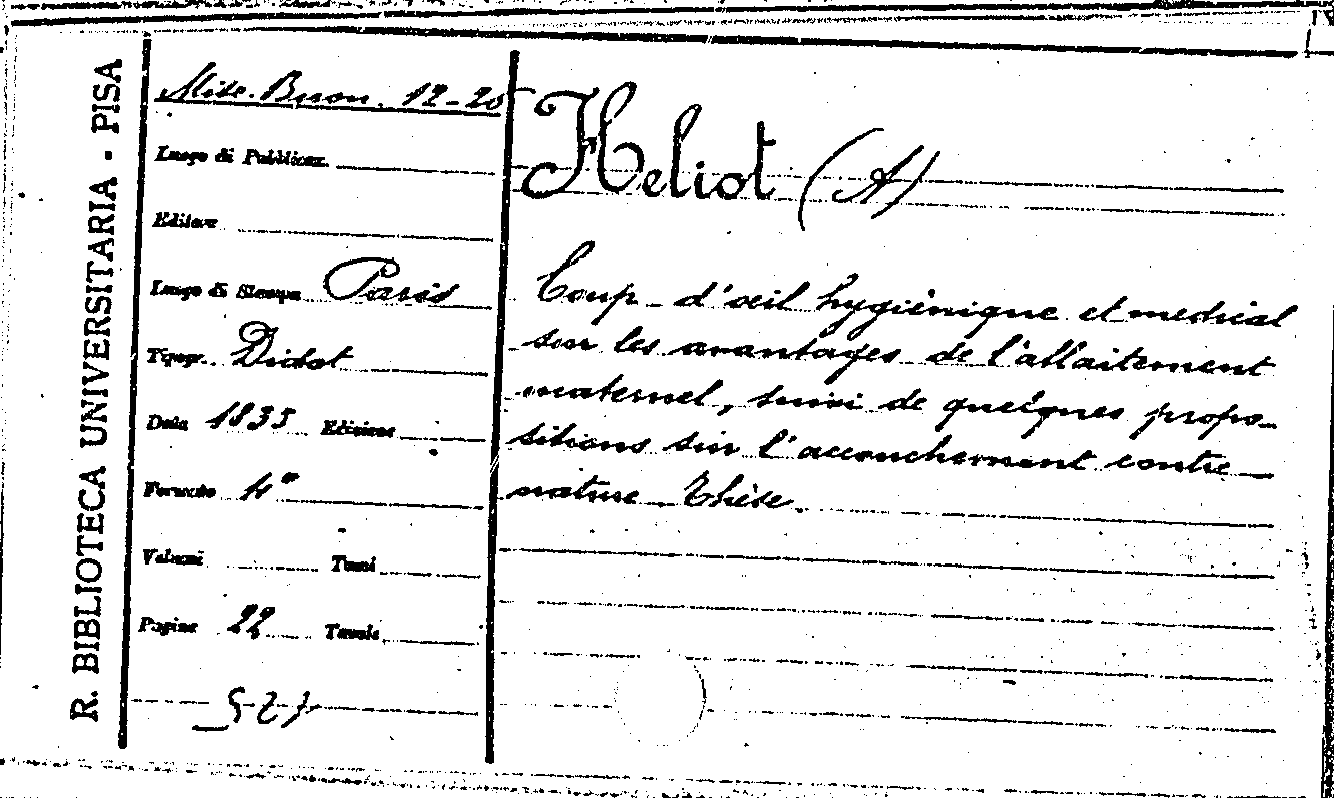 R. BIBLIOTECA UNIVERSITARIA - PISA
Misc. Buon. 12-20
Luogo di Pubblicaz.
Editore
Luogo di Stampa Paris
Tipogr. Didot
Data 1835 Edizione
Formato 4º
Volumi Tomi
Pagine 22 Tavole
Heliot (A)
Coup-d'œil hygiènique et medical
sur les avantages de l'allaitement
maternel, suivi de quelques propo-
sitions sur l'accouchement contre
nature Thèse.